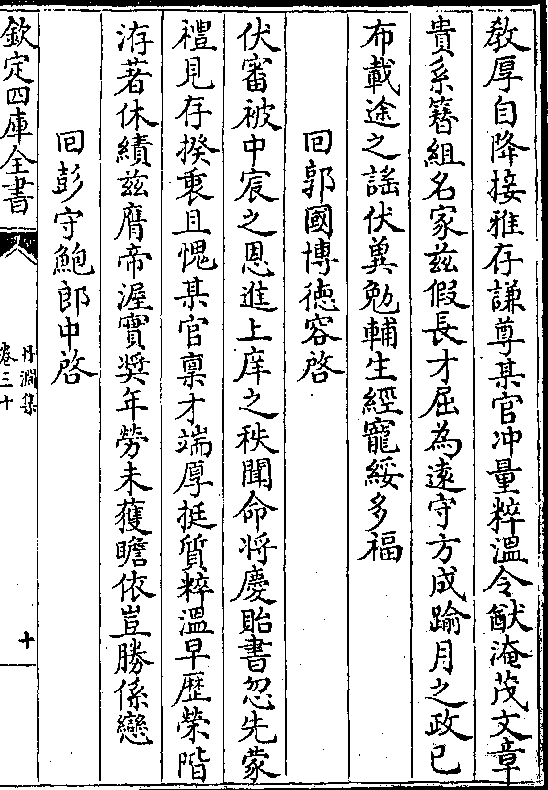 教厚自降接雅存謙尊某官冲量粹溫令猷淹茂文章
貴系簪組名家兹假長才屈為遠守方成踰月之政已
布載途之謡伏兾勉輔生經寵綏多福
回郭國博德容啓
伏審被中宸之恩進上庠之秩聞命將慶貽書忽先蒙
禮見存揆衷且愧某官禀才端厚挺質粹溫早歴榮階
洊著休績兹膺帝渥實奬年勞未獲瞻依豈勝係戀
回彭守鮑郎中啓
欽定四庫全書
丹淵集
卷三十
十